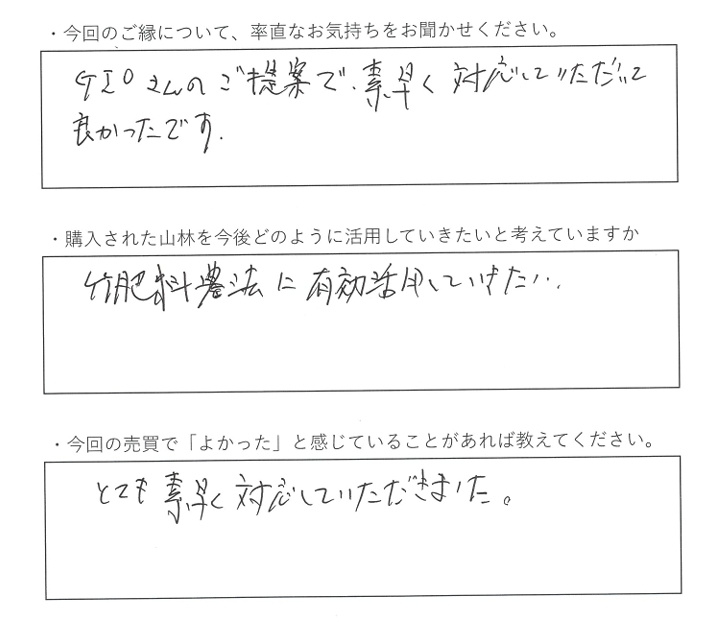 ・今回のご縁について、率直なお気持ちをお聞かせください。
さんのご提案で、素早く対応していただいて
良かったです.
・購入された山林を今後どのように活用していきたいと考えていますか
竹肥料農法に有効活用していきたい.
・今回の売買で「よかった」と感じていることがあれば教えてください。
とても素早く対応していただきました。